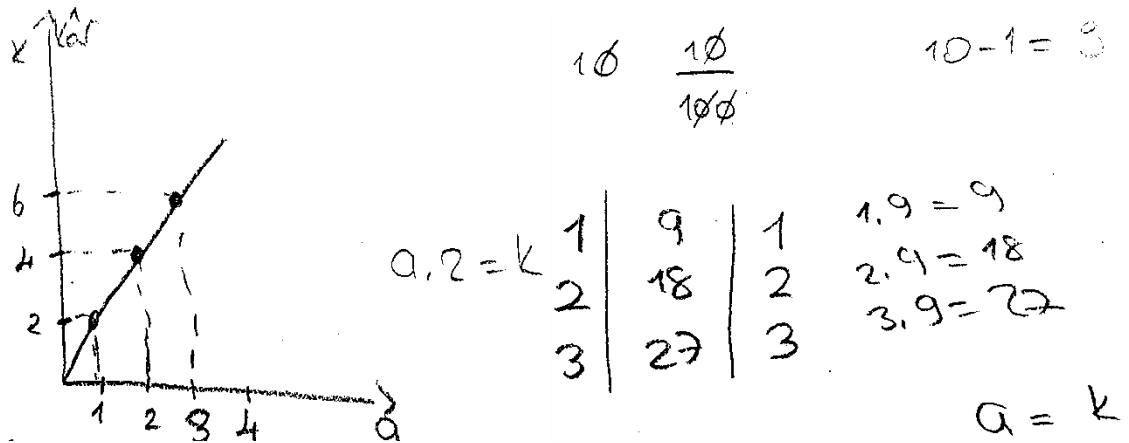 k kâr
6
4
2
1 2 3 4 a
a.2=k
10 10/100
10-1= 9
1 9 1
2 18 2
3 27 3
1.9=9
2.9=18
3.9=27
a = k